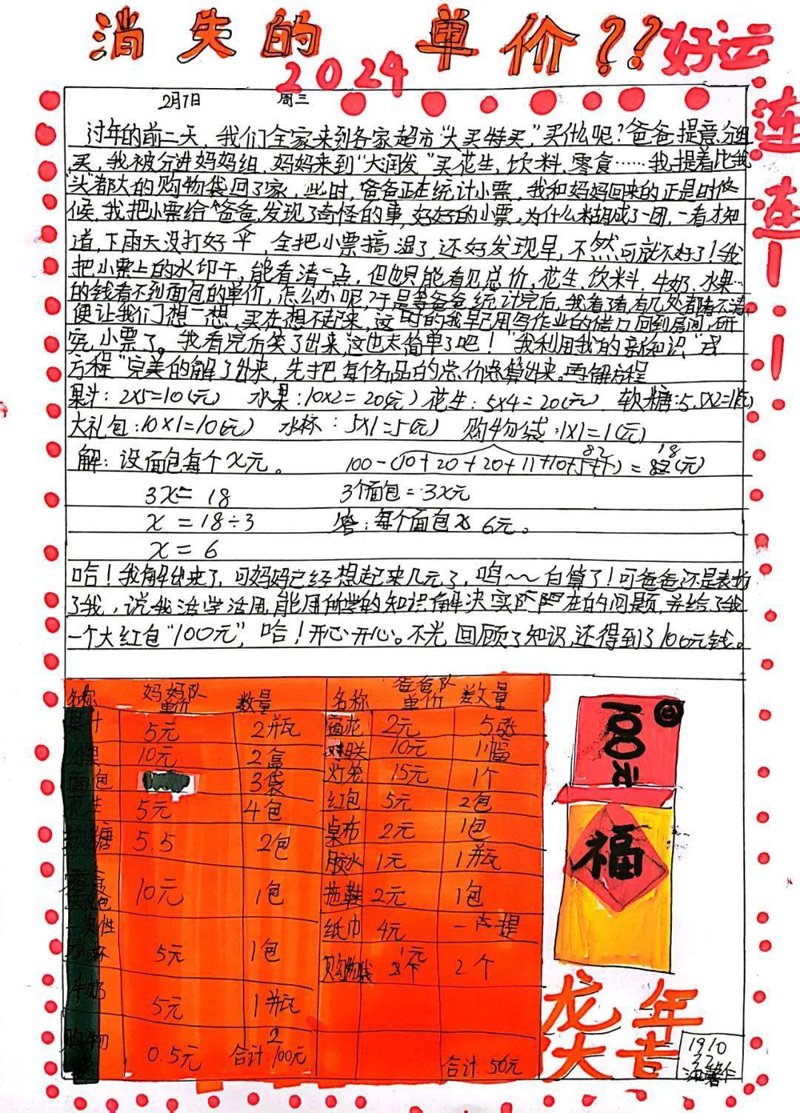 消失的单价??
2024
好运
连连!
2月7日 周三
过年的前二天，我们全家来到各家超市“大买特买”，买什么呢?爸爸提意分组
买，我被分进妈妈组，妈妈来到“大润发”买花生，饮料，零食……我提着比我
头都大的购物袋回了家，此时，爸爸正在统计小票，我和妈妈回来的正是时候
候，我把小票给爸爸，发现了奇怪的事，好好的小票，为什么糊成了一团，一看才知
道，下雨天没打好伞，全把小票搞湿了，还好发现早，不然可就不好了!我
把小票上的水印干，能看清一点，但也只能看见总价，花生，饮料，牛奶，水果…
的钱看不到面包的单价，怎么办呢?于是等爸爸统计完后，我看了看，有几处都看不清
便让我们想一想，买在想不起来，这时的我早已用写作业的借口回到房间，研
究小票了。我看完后笑了出来，这也太简单了吧!“我利用我的新知识“
方程”完美的解了出来，先把每个名品的总价总算出来。再解方程
果汁：2x5=10(元) 水果：10x2=20(元) 花生：5x4=20(元) 软糖：5.5x2=11(元)
大礼包：10x1=10(元) 水杯：5x1=5(元) 购物袋：1x1=1(元)
解：设面包每个x元。 100-(10+20+20+11+10+5+ 82 18 (元)
3x=18 3个面包=3x元
x=18÷3 答：每个面包 6元。
x=6
哈!我解出来了，可妈妈已经想起来几元了，呜~~白算了!可爸爸还是表扬
了我，说我活学活用，能用所学的知识解决实际存在的问题，并给了我
一个大红包“100元”，哈!开心开心。不光回顾了知识，还得到了100元钱。
名称 妈妈队单价 数量 名称 爸爸队单价 数量
果汁 5元 2瓶 窗花 2元 5张
水果 10元 2盒 对联 10元 1幅
面包 3袋 灯笼 15元 1个
花生 5元 4包 红包 5元 2包
软糖 5.5 2包 桌布 2元 1包
胶水 1元 1瓶
10元 1包 拖鞋 2元 1包
一次性 纸巾 4元 一提
5元 1包 购物袋 1元 2个
牛奶 5元 1瓶
购物 0.5元 2
合计:100元 合计:50元
100元
福
龙年
大吉
1910